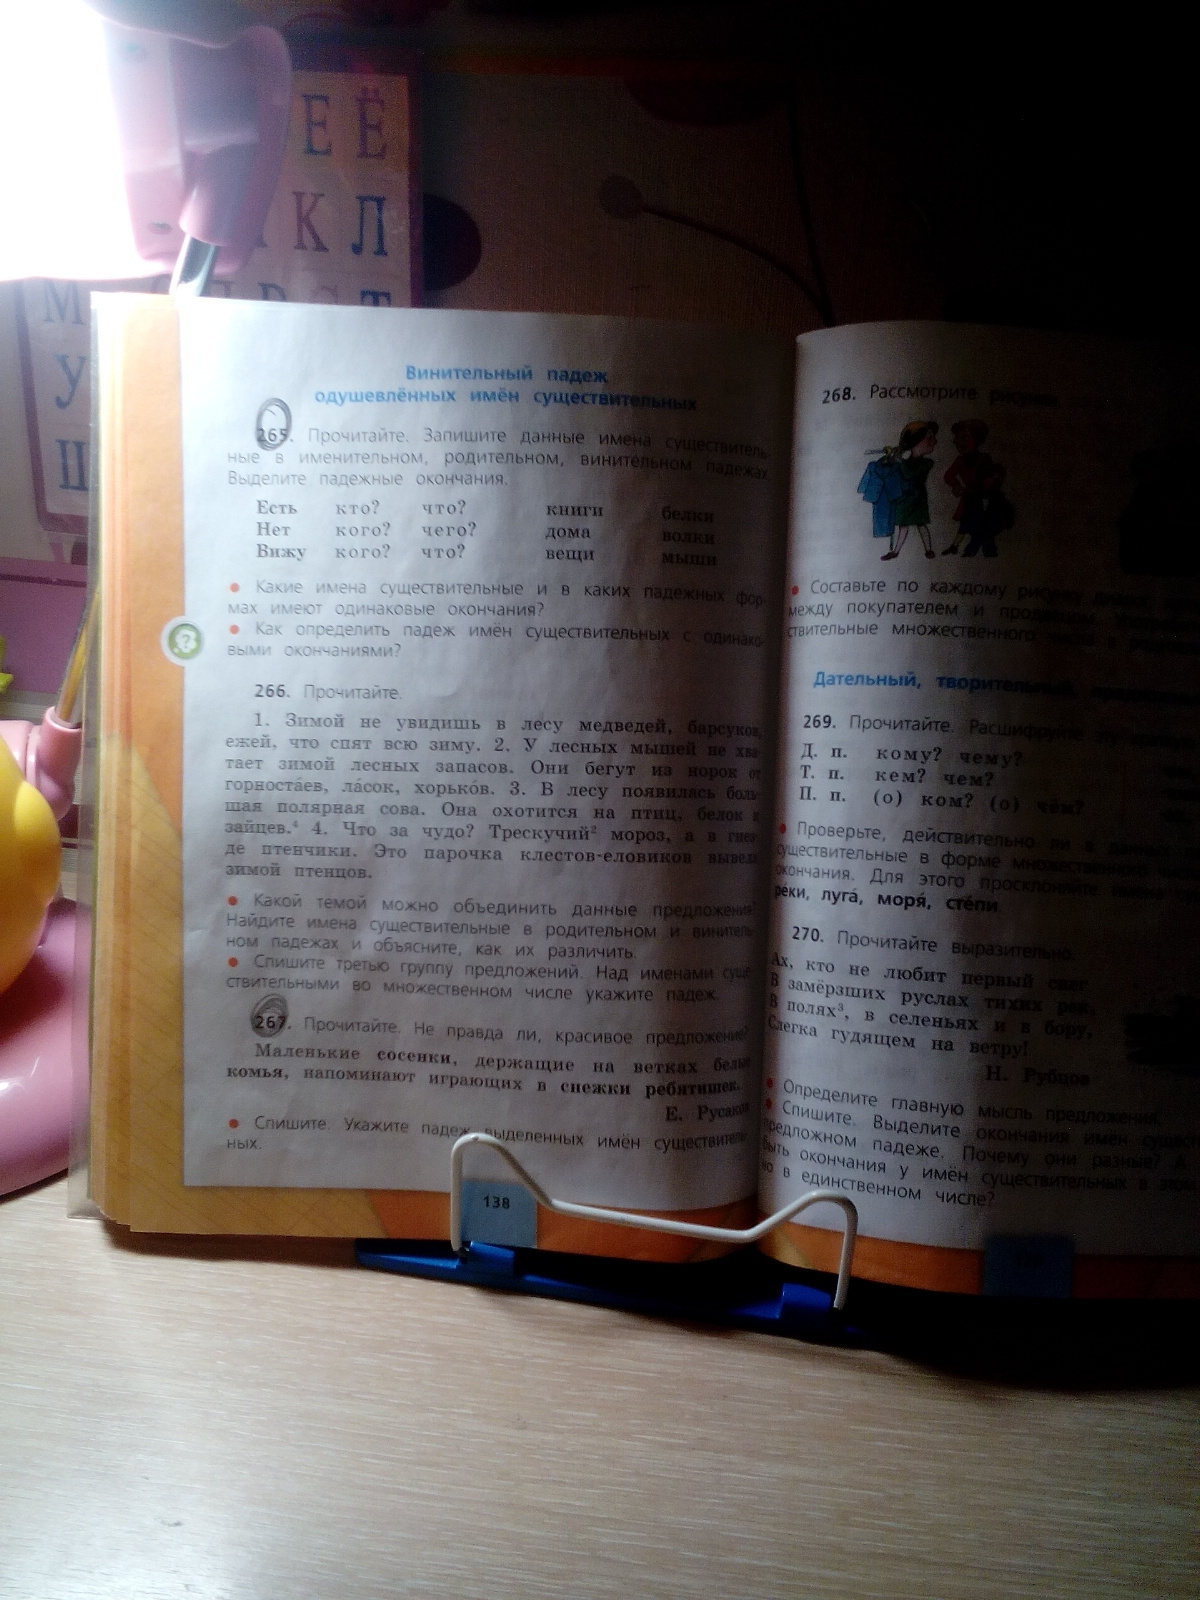 Е Ё
К Л
М
У
Ш
Винительный падеж
одушевлённых имён существительных
265. Прочитайте. Запишите данные имена существитель-
ные в именительном, родительном, винительном падежах.
Выделите падежные окончания.
Есть кто? что? книги белки
Нет кого? чего? дома волки
Вижу кого? что? вещи мыши
• Какие имена существительные и в каких падежных фор-
мах имеют одинаковые окончания?
• Как определить падеж имён существительных с одинако-
выми окончаниями?
266. Прочитайте.
1. Зимой не увидишь в лесу медведей, барсуков,
ежей, что спят всю зиму. 2. У лесных мышей не хва-
тает зимой лесных запасов. Они бегут из норок от
горноста́ев, ла́сок, хорько́в. 3. В лесу появилась боль-
шая полярная сова. Она охотится на птиц, белок и
зайцев.⁴ 4. Что за чудо? Трескучий² мороз, а в гнез-
де птенчики. Это парочка клестов-еловиков вывела
зимой птенцов.
• Какой темой можно объединить данные предложения?
Найдите имена существительные в родительном и винитель-
ном падежах и объясните, как их различить.
• Спишите третью группу предложений. Над именами суще-
ствительными во множественном числе укажите падеж.
267. Прочитайте. Не правда ли, красивое предложение?
Маленькие сосенки, держащие на ветках белые
комья, напоминают играющих в снежки ребятишек.
Е. Русаков
• Спишите. Укажите падеж выделенных имён существитель-
ных.
138
268. Рассмотрите
• Составьте по каждому рисунку
между покупателем и продавцом
ствительные множественного
Дательный, творительный,
269. Прочитайте. Расшифруйте
Д. п. кому? чему?
Т. п. кем? чем?
П. п. (о) ком? (о) чём?
• Проверьте, действительно ли в данных
существительные в форме множественного числа
окончания. Для этого просклоняйте имена
ре́ки, луга́, моря́, сте́пи.
270. Прочитайте выразительно.
Ах, кто не любит первый снег
В замёрзших руслах тихих рек,
В полях³, в селеньях и в бору,
Слегка гудящем на ветру!
Н. Рубцов
• Определите главную мысль предложения.
• Спишите. Выделите окончания имён
предложном падеже. Почему они разные? А
быть окончания у имён существительных в этом
но в единственном числе?